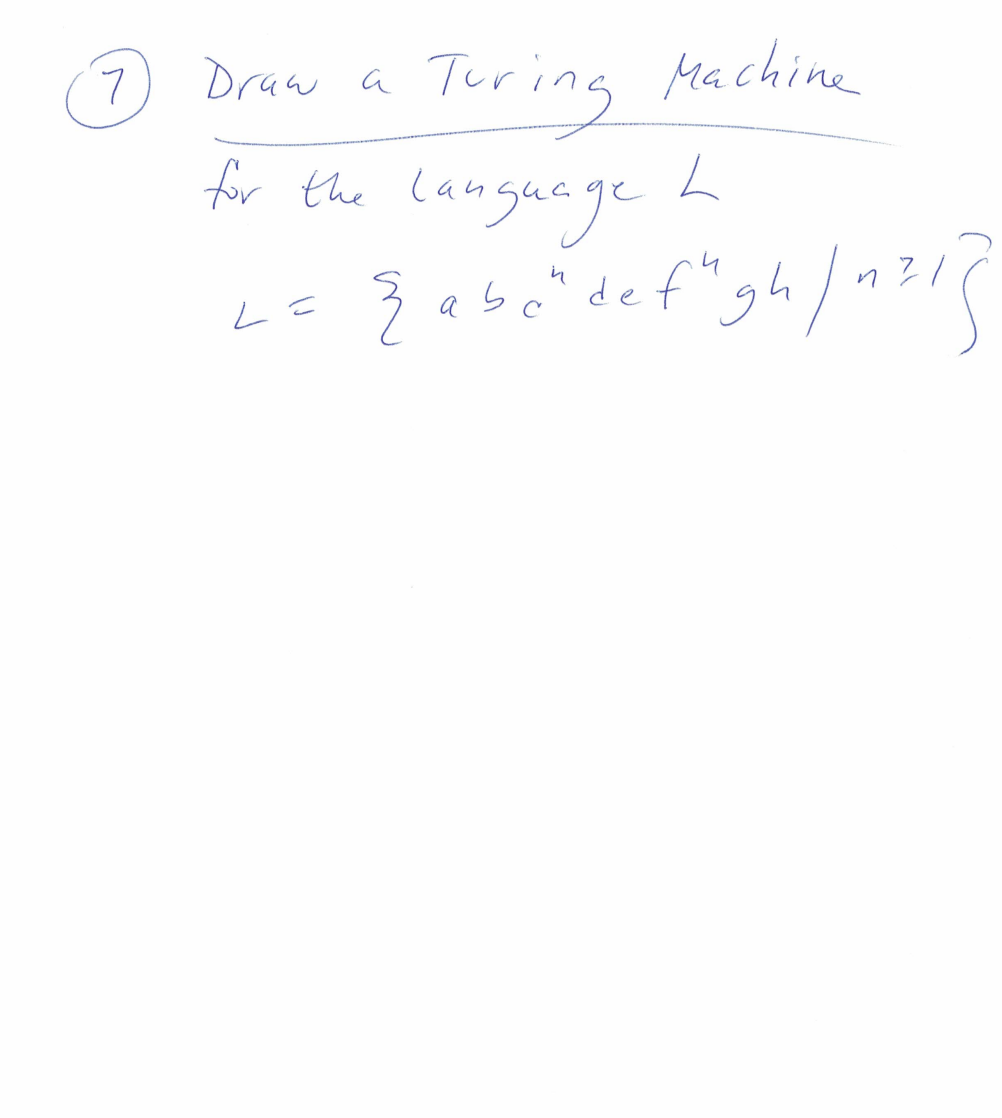 7 Draw a Turing Machine
for the language L
L = { a b cⁿ d e fⁿ g h / n ≥ 1 }